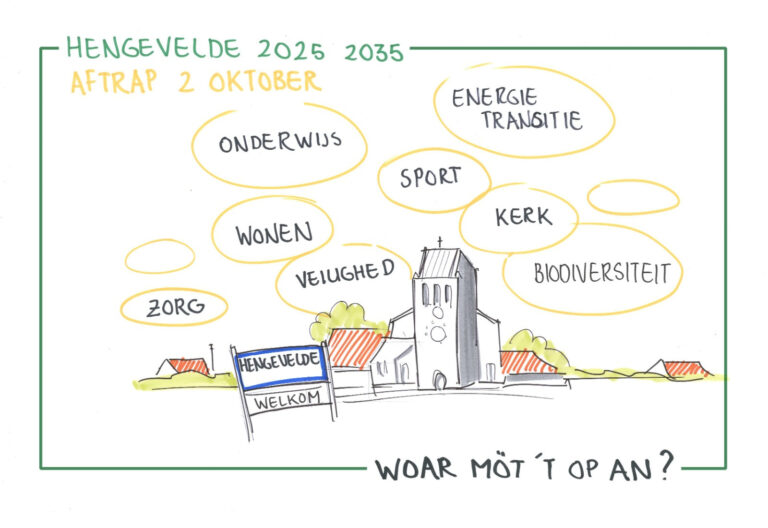 HENGEVELDE 2025 2035
AFTRAP 2 OKTOBER
ENERGIE
TRANSITIE
ONDERWIJS
SPORT
KERK
WONEN
VEILIGHED
BIODIVERSITEIT
ZORG
HENGEVELDE
WELKOM
WOAR MÖT 'T OP AN?